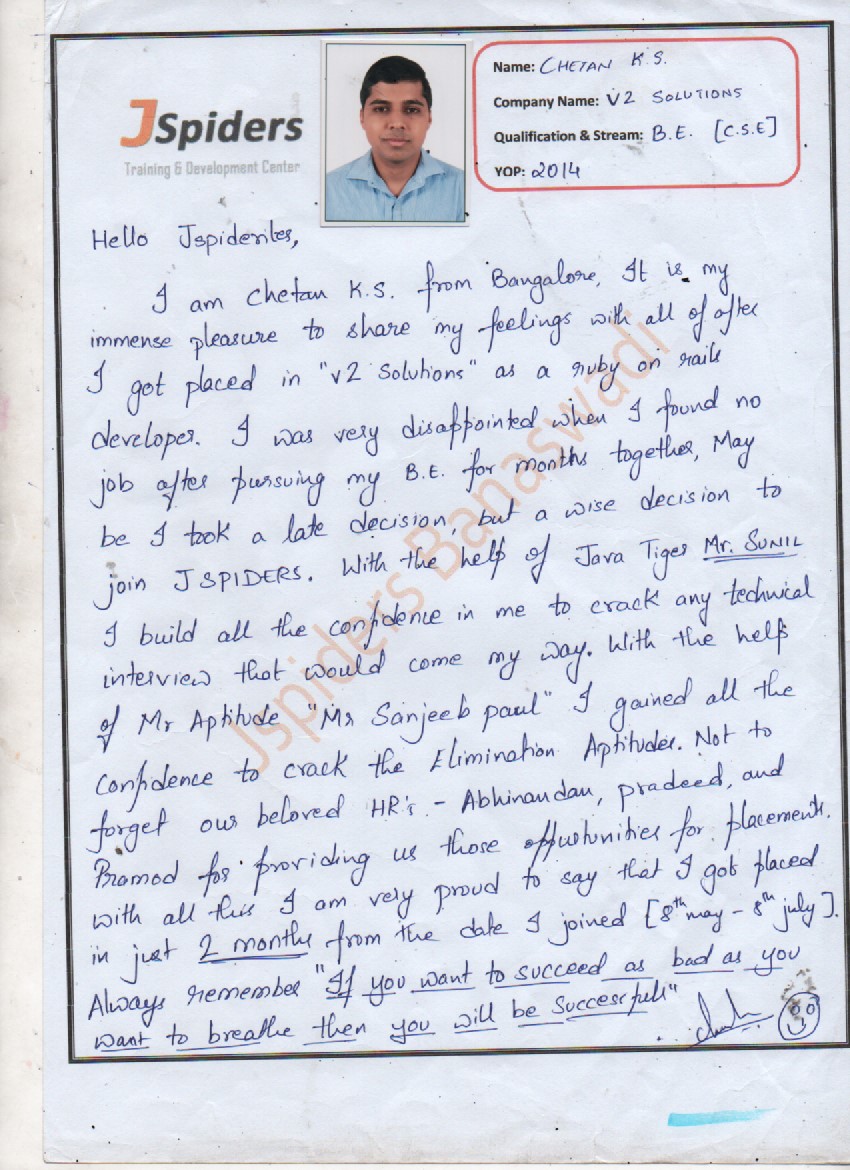 JSpiders
Training & Development Center
Name: CHETAN K.S.
Company Name: V2 SOLUTIONS
Qualification & Stream: B.E. [C.S.E]
YOP: 2014
Hello Jspiderites,
I am Chetan K.S. from Bangalore, It is my
immense pleasure to share my feelings with all of after
I got placed in "V2 Solutions" as a ruby on rails
developer. I was very disappointed when I found no
job after pursuing my B.E. for months together, May
be I took a late decision, but a wise decision to
join JSPIDERS. With the help of Java Tiger Mr. SUNIL
I build all the confidence in me to crack any technical
interview that would come my way. With the help
of Mr Aptitude "Mr Sanjeeb paul" I gained all the
confidence to crack the Elimination Aptitudes. Not to
forget our beloved HR's - Abhinandan, pradeed, and
Pramod for providing us those oppurtunities for placements.
with all this I am very proud to say that I got placed
in just 2 months from the date I joined [8th may - 8th july].
Always remember "If you want to succeed as bad as you
want to breathe then you will be Successfull"
Jspiders Banaswadi